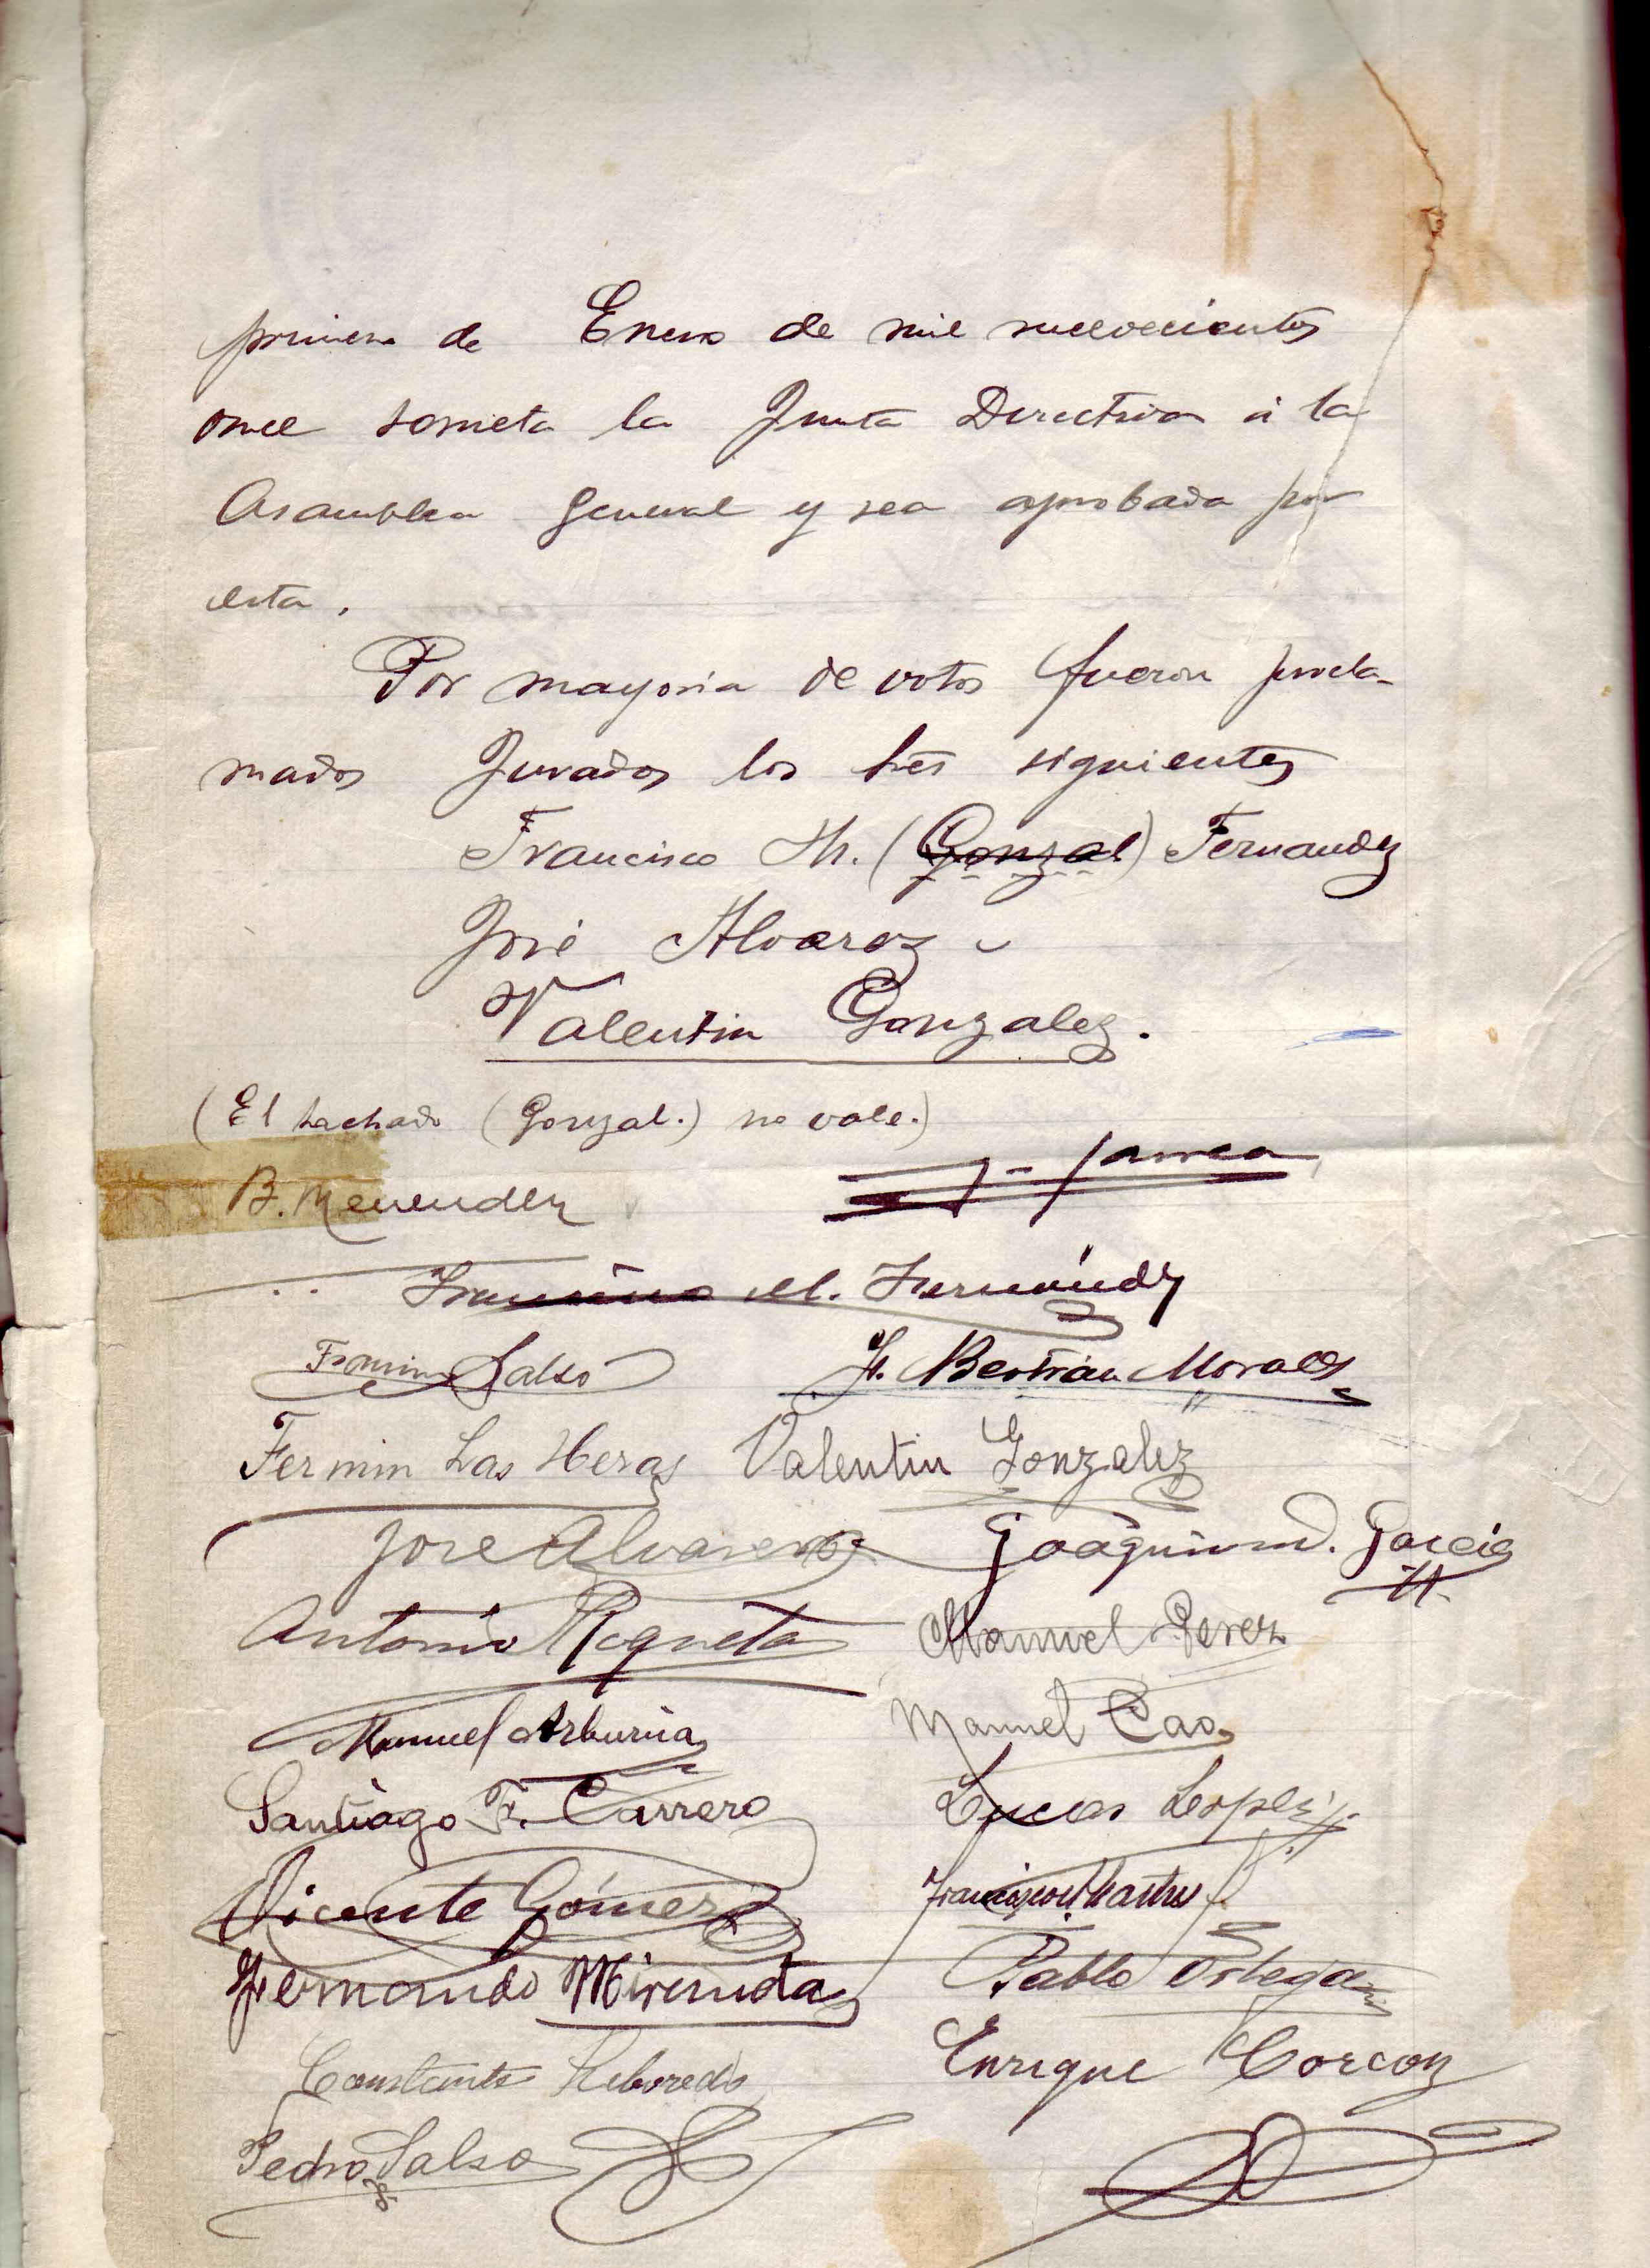 primero de Enero de mil novecientos
once someta la Junta Directiva á la
Asamblea General y sea aprobada por
esta.
Por mayoria de votos fueron procla-
mados Jurados los tres siguientes
Francisco M. (Gonzal) Fernandez
José Alvarez
Valentin Gonzalez.
(El tachado (Gonzal.) no vale.)
B. Menendez
Francisco M. Fernández
Salso F. Bertrán Morales
Fermin Las Heras Valentin Gonzalez
Jose Alvarez Joaquin M. Garcia
Antonio Roqueta Manuel Perez
Manuel Arburua Manuel Cao
Santiago F. Carrero Lucas Lopez
Vicente Gómez Francisco
Fernando Miranda Pablo Ortega
Constante Reboredo Enrique Corcoy
Pedro Salso